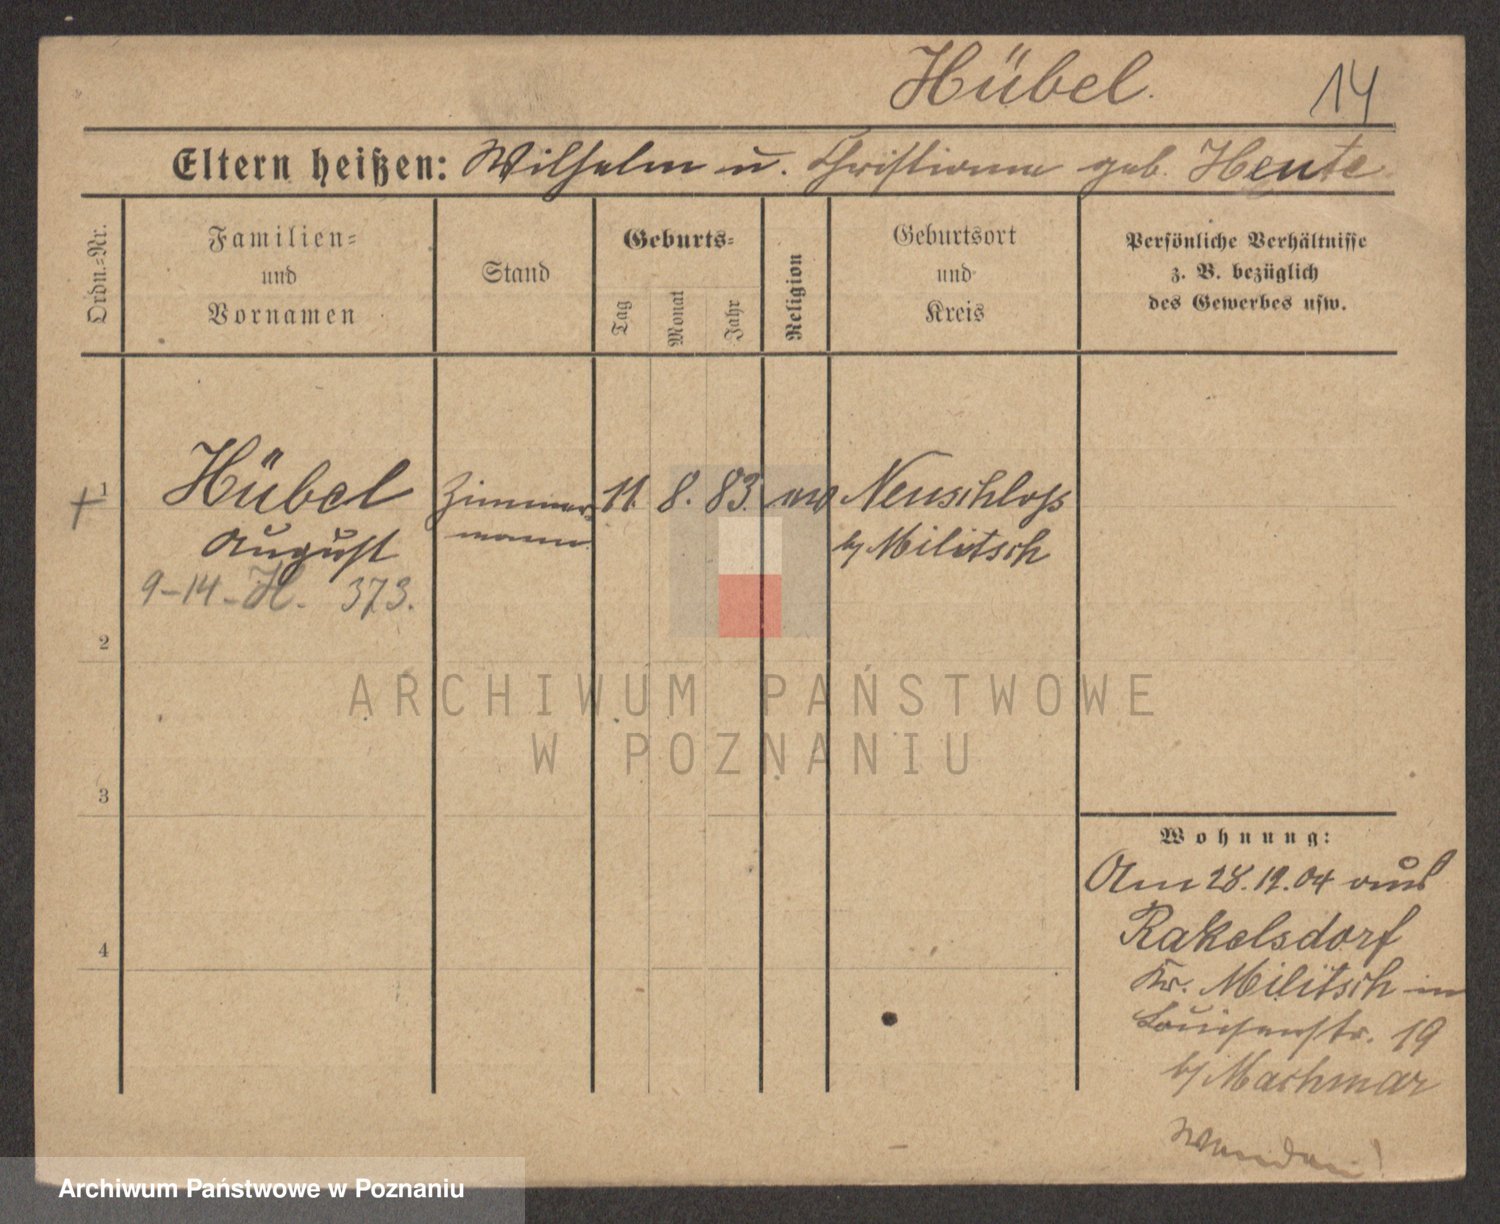 Hübel.
14
Eltern heißen: Wilhelm u. Christiane geb. Heute
Ordn.-Nr.
Familien-
und
Vornamen
Stand
Geburts-
Tag
Monat
Jahr
Religion
Geburtsort
und
Kreis
Persönliche Verhältnisse
z. B. bezüglich
des Gewerbes usw.
1 Hübel Zimmer- 11. 8. 83. ew Neuschloss
August mann b/ Militsch
9-14-H. 373.
2
ARCHIWUM PAŃSTWOWE
W POZNANIU
3
Wohnung:
Am 28.12.04 aus
Rakelsdorf
4
Kr. Militsch in
Louisenstr. 19
b/ Machmar
Archiwum Państwowe w Poznaniu